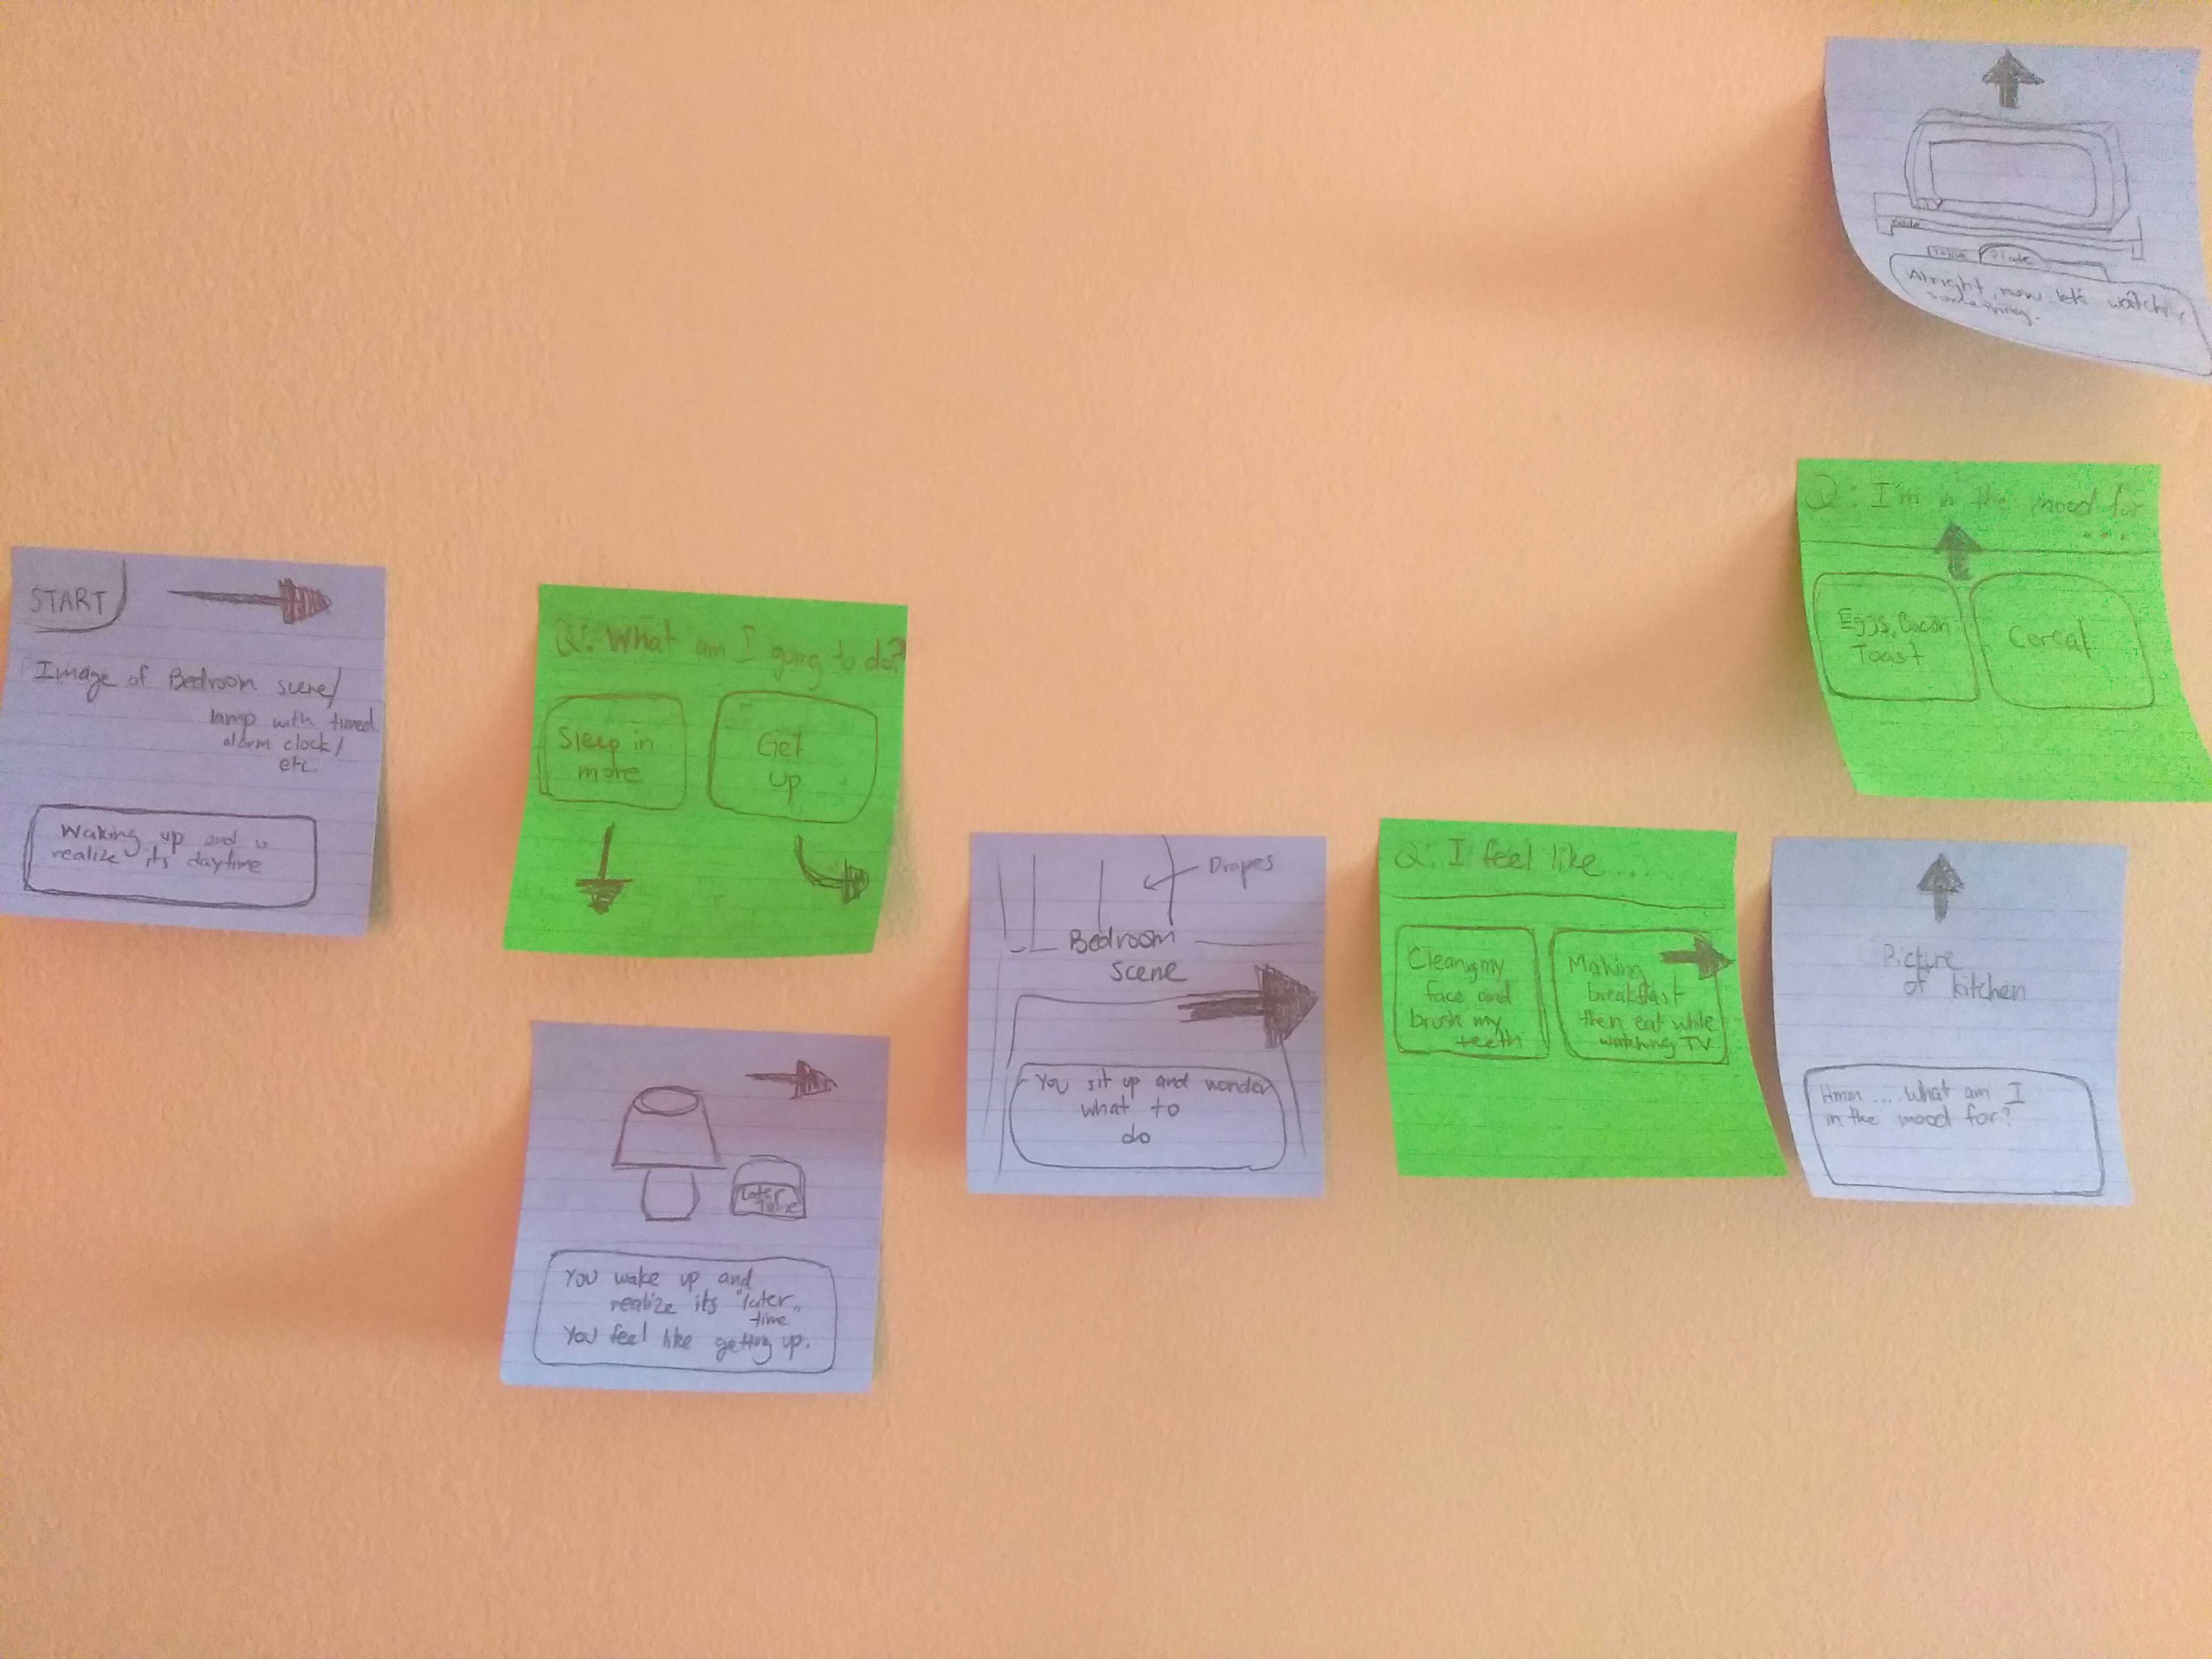 START
Image of Bedroom scene/
lamp with timed
alarm clock/
etc.
Waking up and u
realize its daytime
Q: What am I going to do?
Sleep in
more
Get
up
Later
Time
You wake up and
realize its "later"
time
You feel like getting up.
Drapes
Bedroom
scene
You sit up and wonder
what to
do
Q: I feel like.....
Cleaning my
face and
brush my
teeth
Making
breakfast
then eat while
watching TV
Picture
of kitchen
Hmm ... What am I
in the mood for?
Q: I'm in the mood for
...
Eggs, Bacon
Toast
Cereal
Plate
Alright, now let's watch
something.